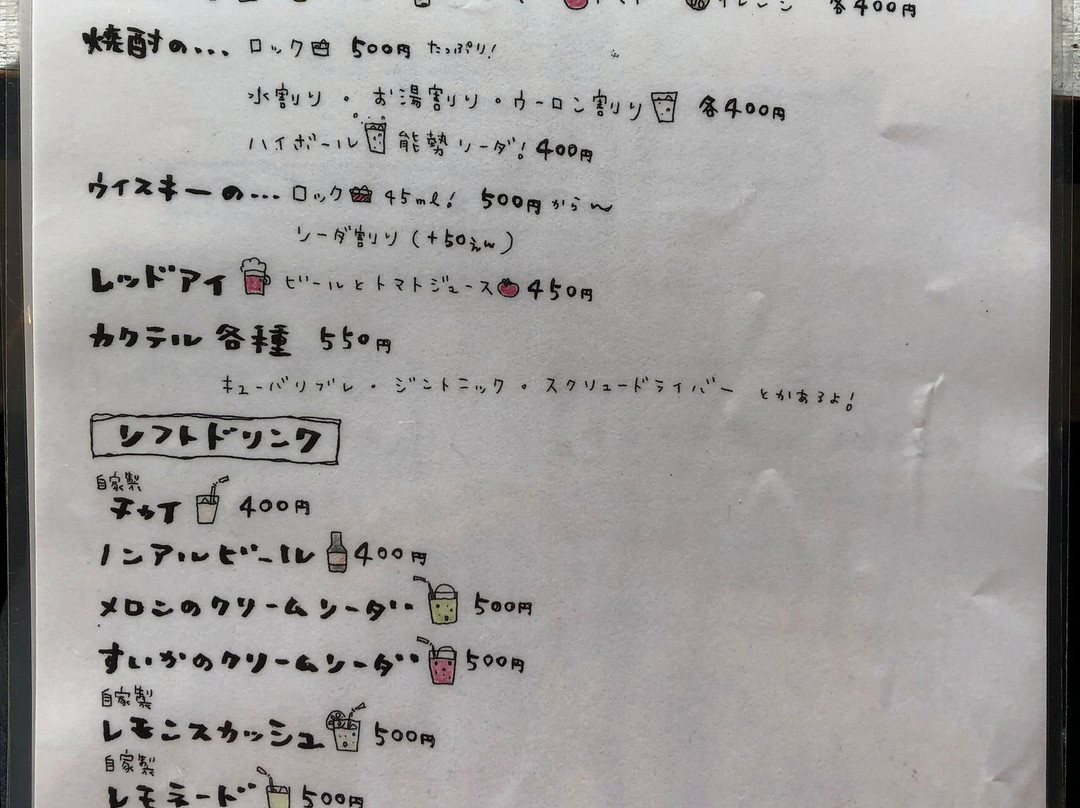 トマト オレンジ 各400円
焼酎の... ロック 500円 たっぷり!
水割り・お湯割り・ウーロン割り 各400円
ハイボール 能勢ソーダ! 400円
ウイスキーの... ロック 45ml! 500円から〜
ソーダ割り (+50えん)
レッドアイ ビールとトマトジュース 450円
カクテル 各種 550円
キューバリブレ・ジントニック・スクリュードライバー とかあるよ!
ソフトドリンク
自家製
チャイ 400円
ノンアルビール 400円
メロンのクリームソーダ 500円
すいかのクリームソーダ 500円
自家製
レモンスカッシュ 500円
自家製
レモネード 500円